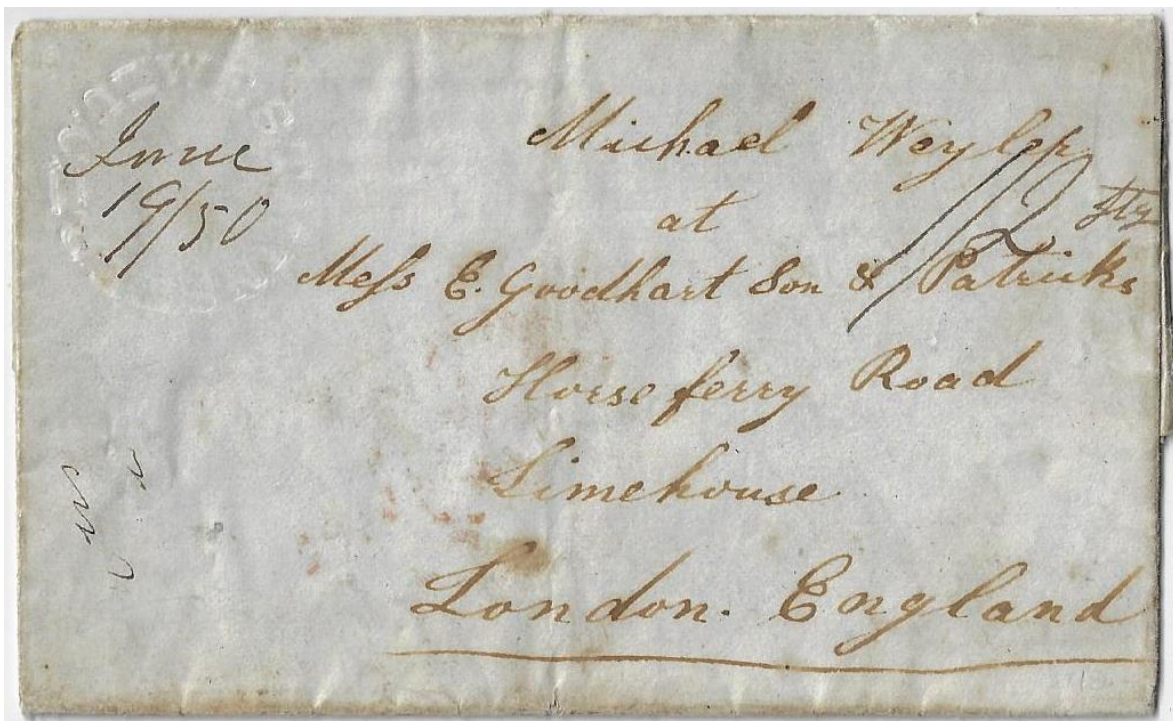 June
19/50
Michael Weyler
at
Mess E. Goodhart Son & Patricks
Horseferry Road
Limehouse
London. England